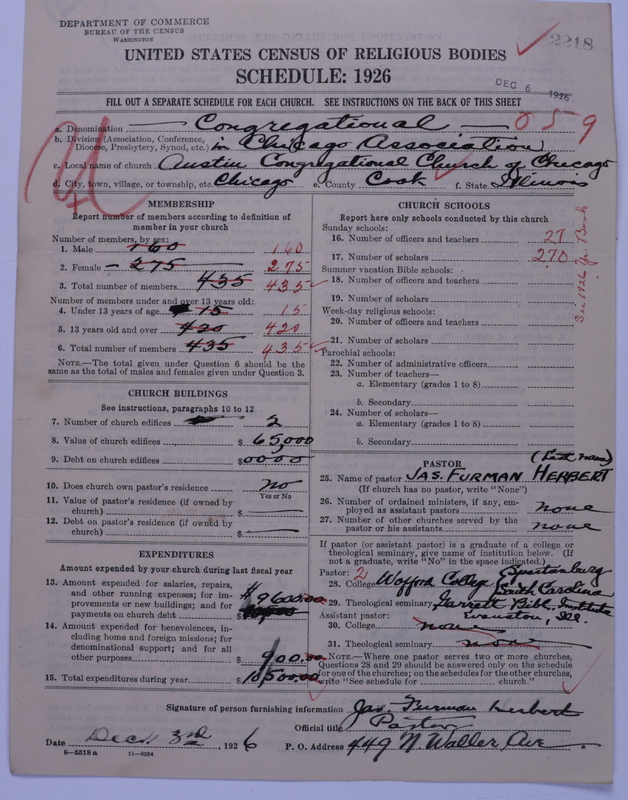 DEPARTMENT OF COMMERCE
BUREAU OF THE CENSUS
WASHINGTON
2218
UNITED STATES CENSUS OF RELIGIOUS BODIES
SCHEDULE: 1926
DEC 6 1926
FILL OUT A SEPARATE SCHEDULE FOR EACH CHURCH. SEE INSTRUCTIONS ON THE BACK OF THIS SHEET
a. Denomination Congregational 059
b. Division (Association, Conference, Diocese, Presbytery, Synod, etc.) in Chicago Association
c. Local name of church Austin Congregational Church of Chicago
d. City, town, village, or township, etc. Chicago e. County Cook f. State Illinois
MEMBERSHIP
Report number of members according to definition of
member in your church
Number of members, by sex:
1. Male 160 160
2. Female 275 275
3. Total number of members 435 435
Number of members under and over 13 years old:
4. Under 13 years of age 15 15
5. 13 years old and over 420 420
6. Total number of members 435 435
NOTE.—The total given under Question 6 should be the
same as the total of males and females given under Question 3.
CHURCH BUILDINGS
See instructions, paragraphs 10 to 12
7. Number of church edifices 2
8. Value of church edifices $65,000
9. Debt on church edifices $0000
10. Does church own pastor's residence? no
Yes or No
11. Value of pastor's residence (if owned by
church) $
12. Debt on pastor's residence (if owned by
church) $
EXPENDITURES
Amount expended by your church during last fiscal year
13. Amount expended for salaries, repairs,
and other running expenses; for im-
provements or new buildings; and for
payments on church debt $9600.00
14. Amount expended for benevolences, in-
cluding home and foreign missions; for
denominational support; and for all
other purposes $900.00
15. Total expenditures during year $10,500.00
CHURCH SCHOOLS
Report here only schools conducted by this church
Sunday schools:
16. Number of officers and teachers 27
17. Number of scholars 270
See 1926 Yr. Book
Summer vacation Bible schools:
18. Number of officers and teachers
19. Number of scholars
Week-day religious schools:
20. Number of officers and teachers
21. Number of scholars
Parochial schools:
22. Number of administrative officers
23. Number of teachers—
a. Elementary (grades 1 to 8)
b. Secondary
24. Number of scholars—
a. Elementary (grades 1 to 8)
b. Secondary
PASTOR
(Last name)
25. Name of pastor JAS. FURMAN HERBERT
(If church has no pastor, write "None")
26. Number of ordained ministers, if any, em-
ployed as assistant pastors none
27. Number of other churches served by the
pastor or his assistants none
If pastor (or assistant pastor) is a graduate of a college or
theological seminary, give name of institution below. (If
not a graduate, write "No" in the space indicated.)
Pastor: 2 Spartanburg
28. College Wofford College South Carolina
29. Theological seminary Garrett Bibl. Institute
Assistant pastor: Evanston, Ill.
30. College none
31. Theological seminary none
NOTE.—Where one pastor serves two or more churches,
Questions 28 and 29 should be answered only on the schedule
for one of the churches; on the schedules for the other churches,
write "See schedule for church."
Signature of person furnishing information Jas. Furman Herbert
Official title Pastor
Date Dec. 3rd, 1926 P. O. Address 449 N. Waller Ave.
6—5518 a 11—9034